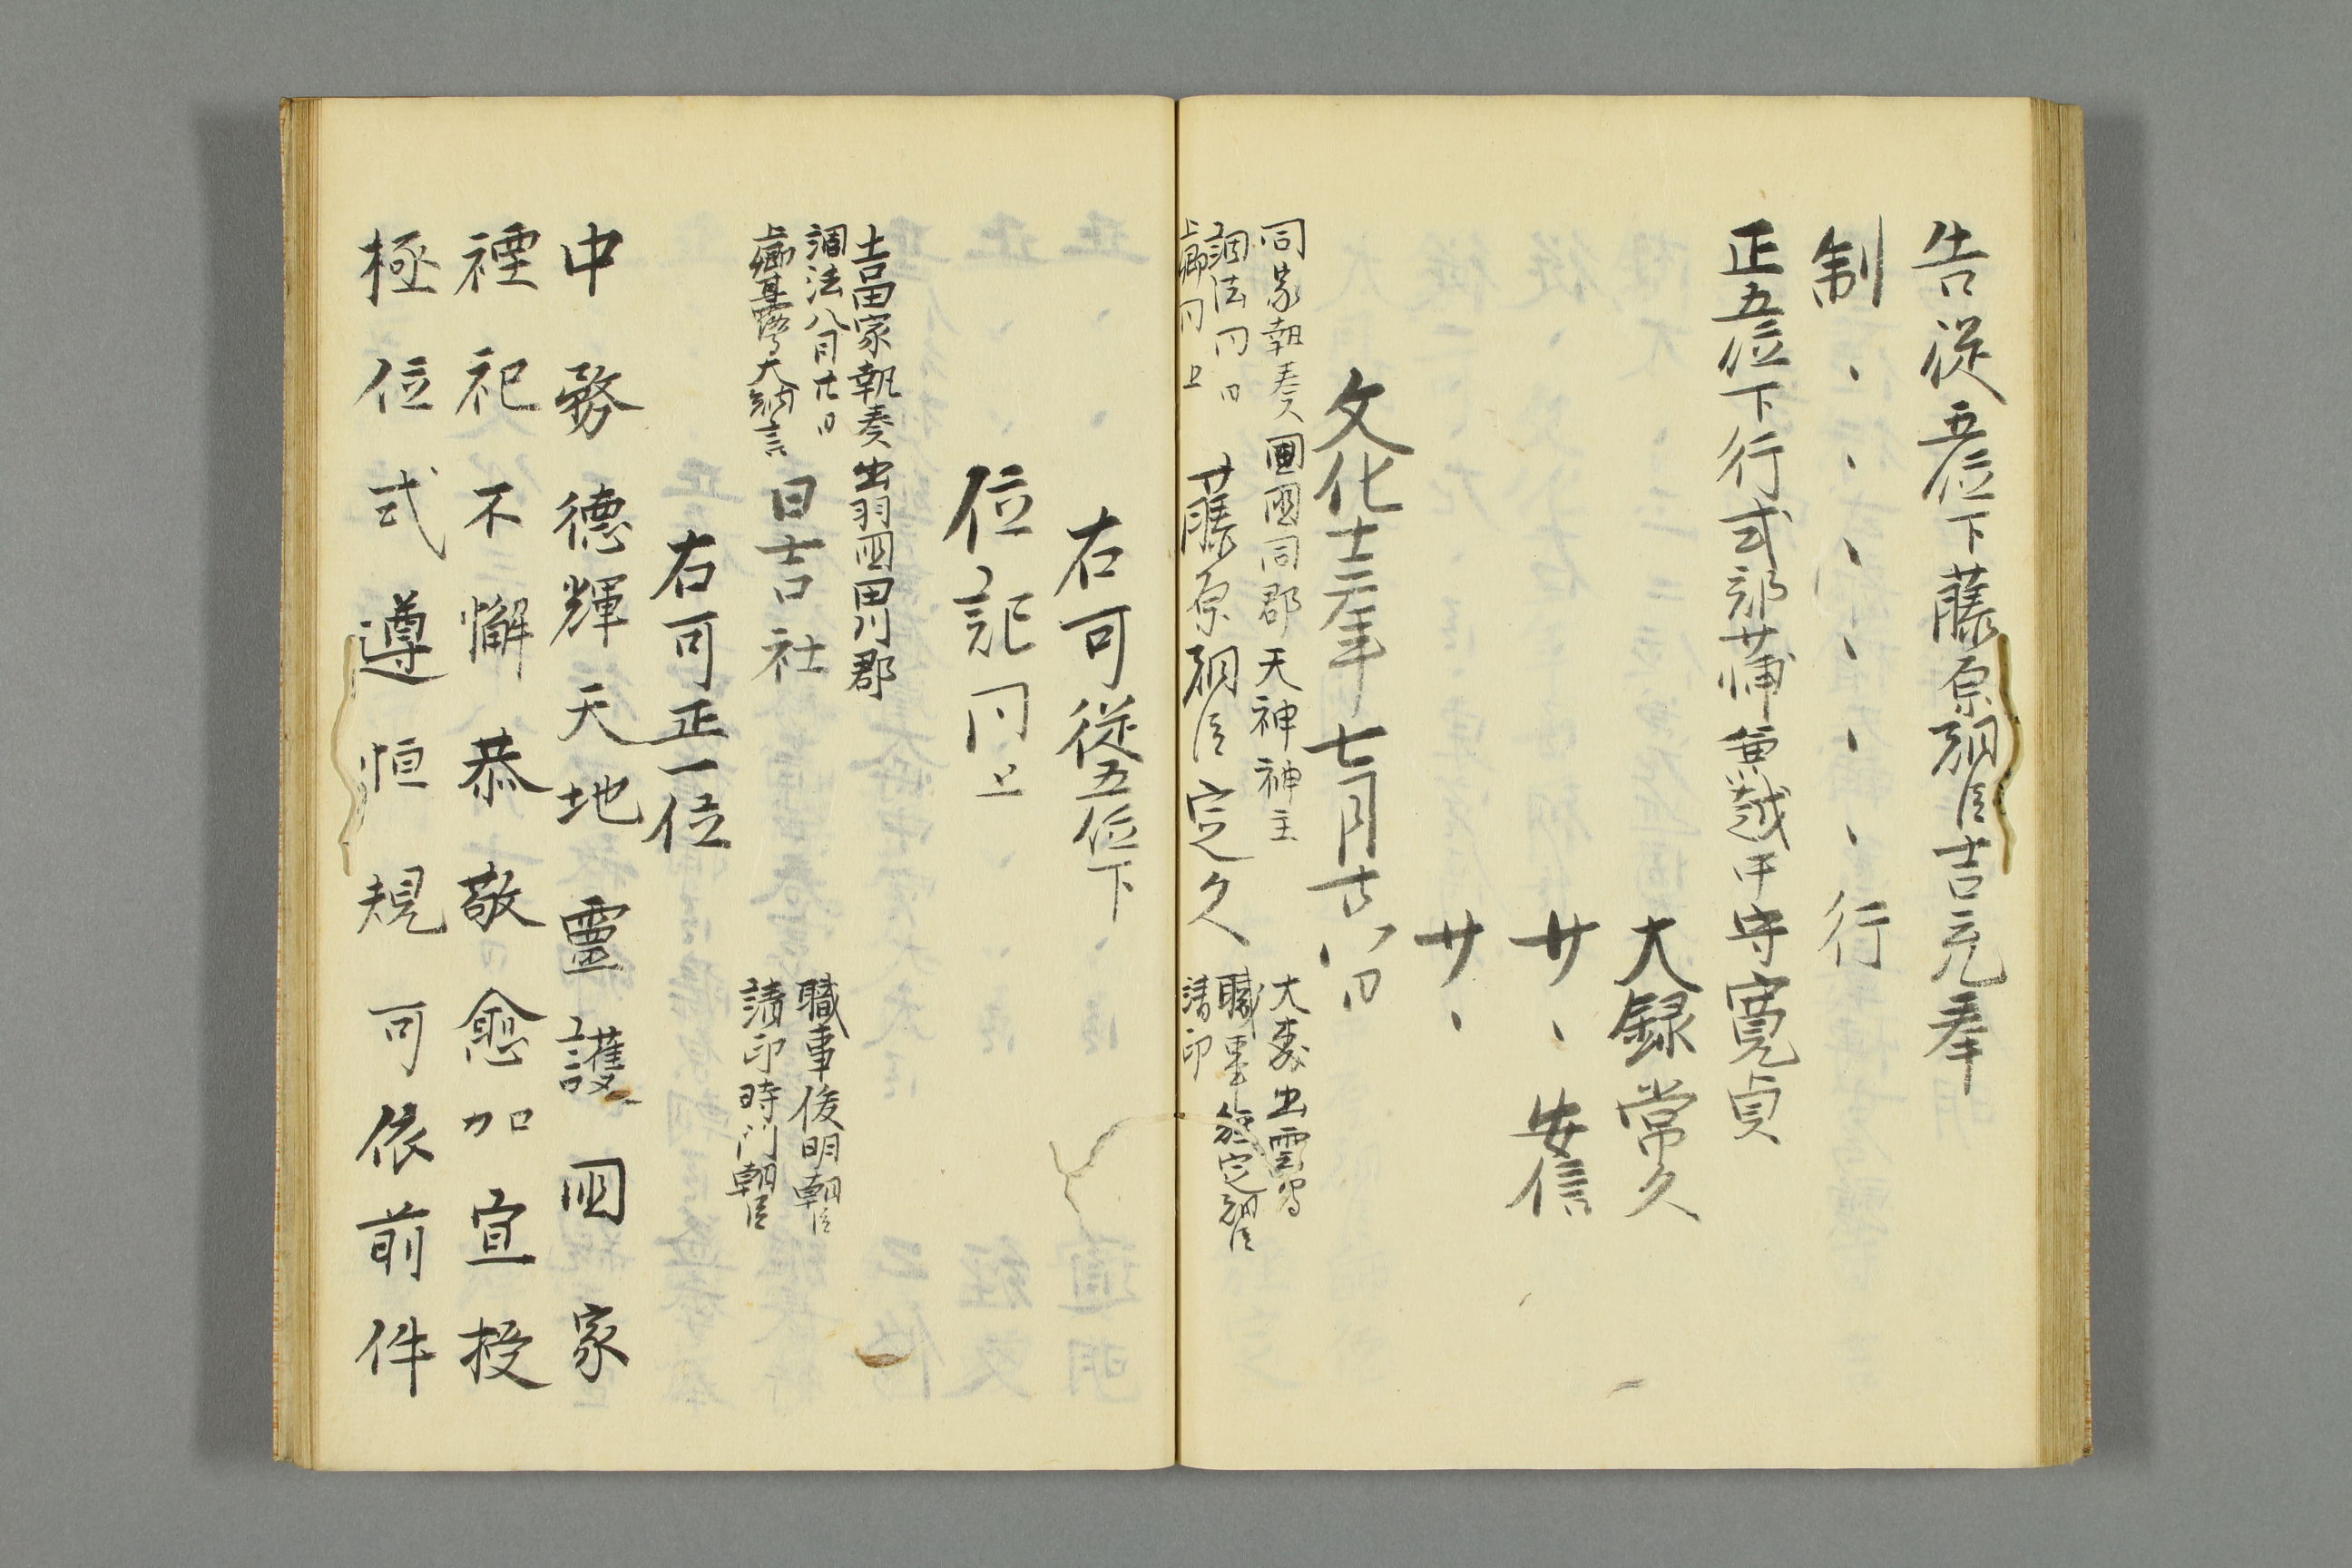 告従五位下藤原朝臣吉元奉
制、、、、、、行
正五位下行式部少輔兼越中守寛貞
大録常久
少、安信
少、
文化十三年七月廿八日
同家執奏 同国同郡天神神主
調法同日
上卿同上
藤原朝臣定久
大売出雲寺
職事
請印
右可従五位下
位記同上
吉田家執奏 出羽国田川郡
調法八月廿日
上卿甘露寺大納言
日吉社
職事俊明朝臣
請印時門朝臣
右可正一位
中務徳輝天地霊護国家
禋祀不懈恭敬愈加宜授
極位式遵恒規可依前件